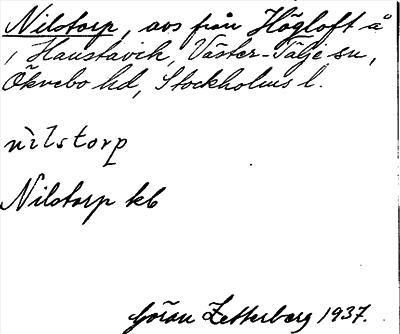 Nilstorp, avs från Högloft å
i Haustavik, Väster-Tälje sn,
Öknebo hd, Stockholms l.
nilstorp
Nilstorp kb
Göran Zetterberg 1937.